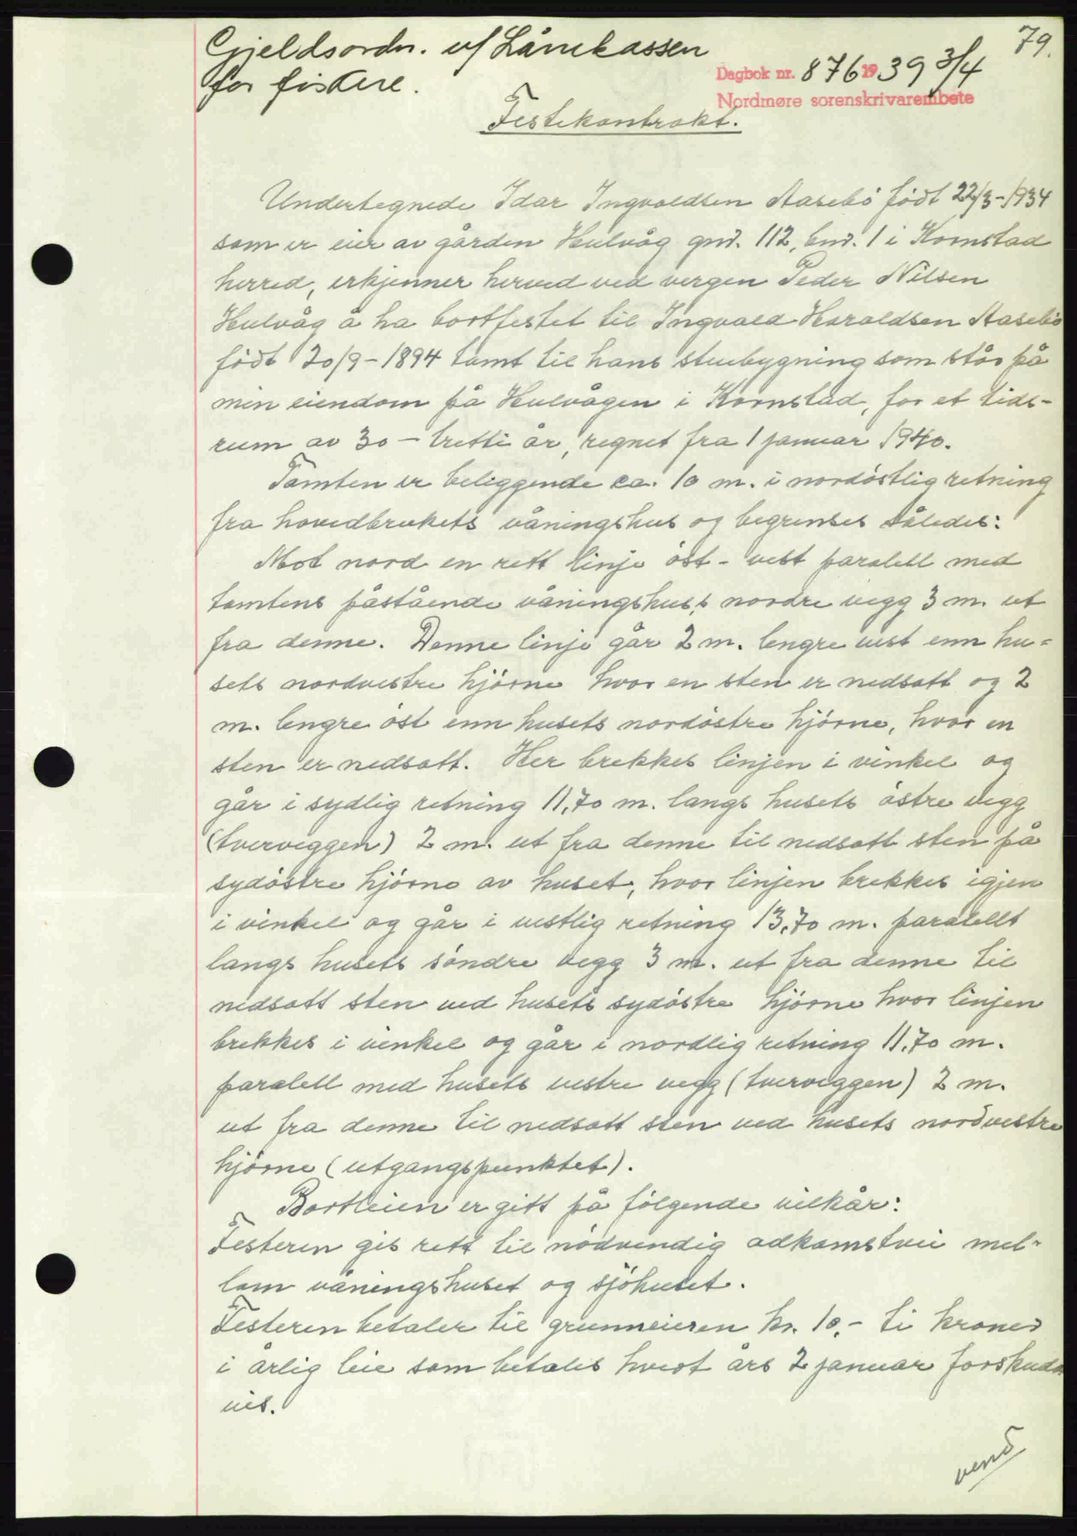 79.
Gjeldsordn. v/ Lånekassen
for fiskere.
Dagbok nr. 876 1939 3/4
Nordmøre sorenskrivarembete
Festekontrakt.
Undertegnede Idar Ingvaldsen Aasebö födt 22/3-1934
som er eier av gården Hulvåg gnr. 112, bnr. 1 i Kornstad
herred, erkjenner herved ved vergen Peder Nilsen
Hulvåg å ha bortfestet til Ingvald Haraldsen Aasebö
födt 20/9-1894 tomt til hans stuebygning som står på
min eiendom på Hulvågen i Kornstad, for et tids-
rum av 30 - tretti år, regnet fra 1 januar 1940.
Tomten er beliggende ca. 10 m. i nordöstlig retning
fra hovedbrukets våningshus og begrenses således:
Mot nord en rett linje öst - vest paralell med
tomtens påstående våningshus's nordre vegg 3 m. ut
fra denne. Denne linje går 2 m. lengre vest enn hu-
sets nordvestre hjörne hvor en sten er nedsatt og 2
m. lengre öst enn husets nordöstre hjörne, hvor en
sten er nedsatt. Her brekkes linjen i vinkel og
går i sydlig retning 11,70 m. langs husets östre vegg
(tverveggen) 2 m. ut fra denne til nedsatt sten på
sydöstre hjörne av huset, hvor linjen brekkes igjen
i vinkel og går i vestlig retning 13,70 m. paralellt
langs husets söndre vegg 3 m. ut fra denne til
nedsatt sten ved husets sydöstre hjörne hvor linjen
brekkes i vinkel og går i nordlig retning 11,70 m.
paralell med husets vestre vegg (tverveggen) 2 m.
ut fra denne til nedsatt sten ved husets nordvestre
hjörne (utgangspunktet).
Bortleien er gitt på fölgende vilkår:
Festeren gis rett til nödvendig adkomstvei mel-
lom våningshuset og sjöhuset.
Festeren betaler til grunneieren kr. 10,- ti kroner
i årlig leie som betales hvert års 2 januar forskudds
vis.
vend